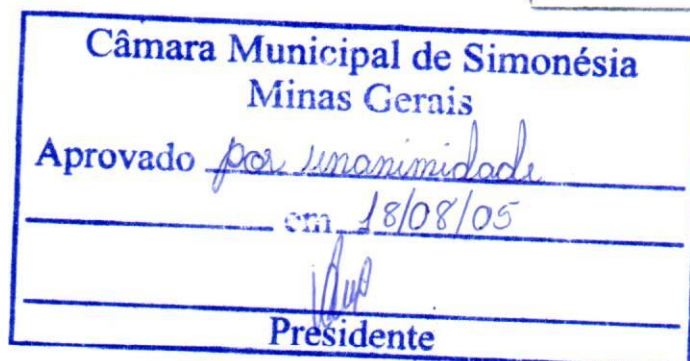 Câmara Municipal de Simonésia
Minas Gerais
Aprovado por unanimidade
em 18/08/05
Presidente